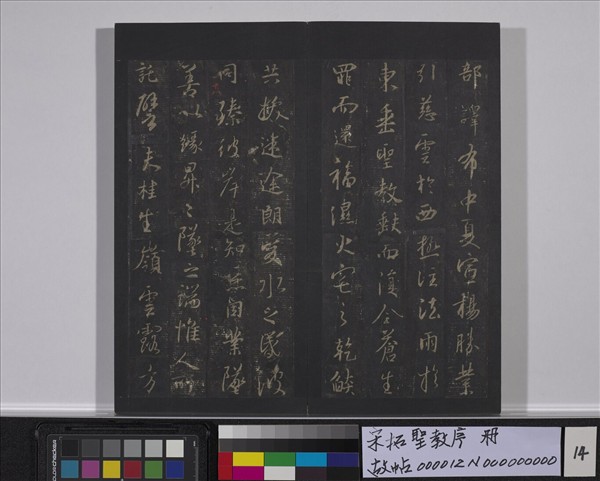 部譯布中夏宣揚勝業
引慈雲於西極注法雨於
東垂聖教缺而復全蒼生
罪而還福濕火宅之乾燄
共拔迷途朗愛水之昏波
同臻彼岸是知惡因業墜
善以緣昇昇墜之端惟人所
託譬夫桂生嶺雲露方
宋拓聖教序 冊
故帖000012N000000000
14